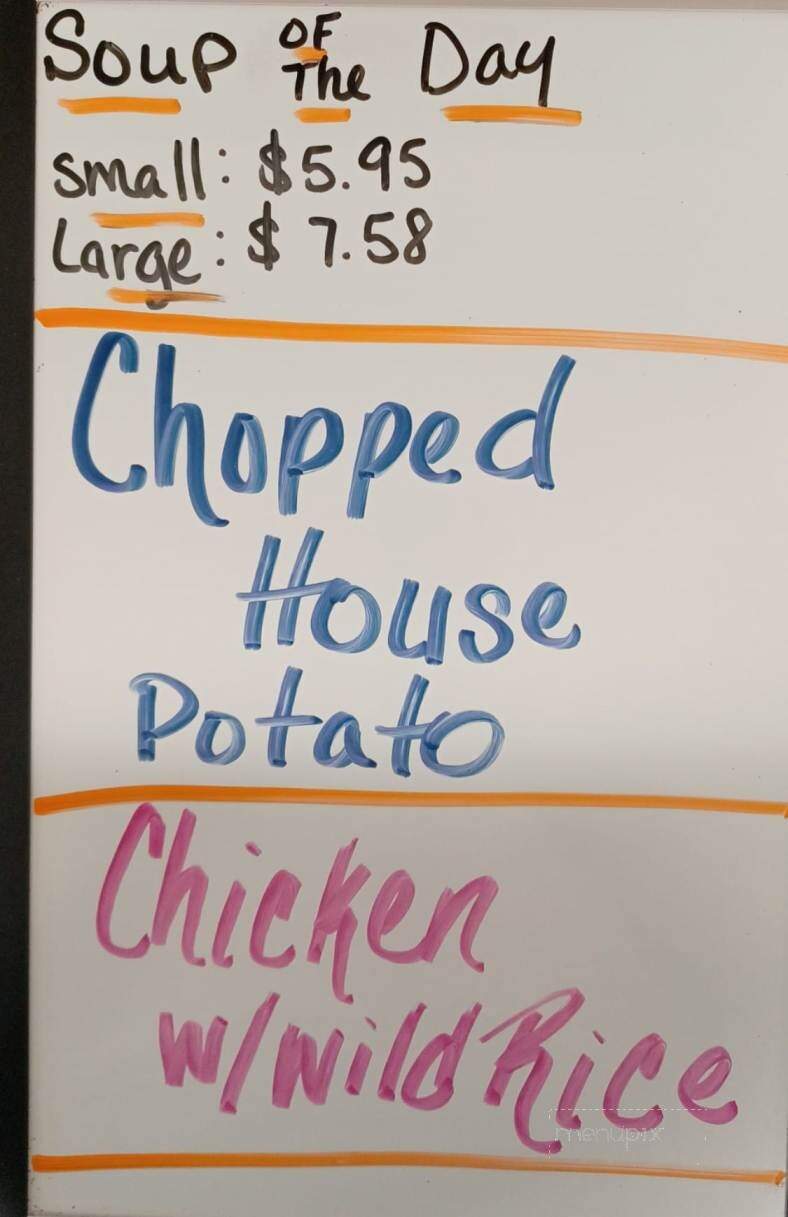 Soup OF The Day
small: $5.95
Large: $7.58
Chopped
House
Potato
Chicken
w/wild Rice
menupix